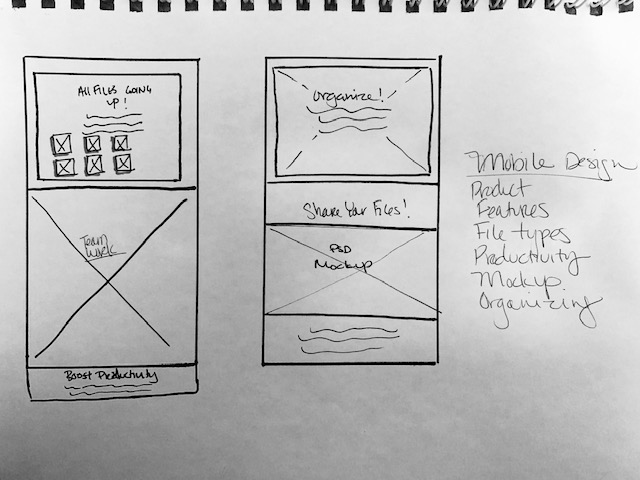 All Files Going
Up!
Team
Work
Boost Productivity
Organize!
Share Your Files!
PSD
Mockup
Mobile Design
Product
Features
File types
Productivity
Mockup
Organizing